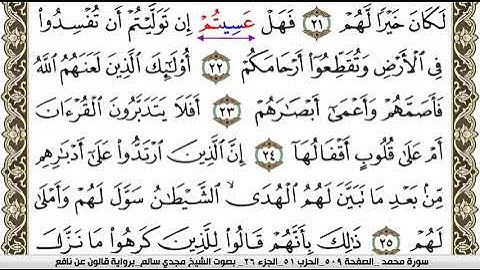 لَكَانَ خَيْرًا لَّهُمْ ٢١ فَهَلْ عَسِيتُمْ إِن تَوَلَّيْتُمْ أَن تُفْسِدُوا۟
فِى الْأَرْضِ وَتُقَطِّعُوٓا۟ أَرْحَامَكُمْ ٢٢ أُو۟لَٰٓئِكَ الَّذِينَ لَعَنَهُمُ اللَّهُ
فَأَصَمَّهُمْ وَأَعْمَىٰٓ أَبْصَٰرَهُمْ ٢٣ أَفَلَا يَتَدَبَّرُونَ الْقُرْءَانَ
أَمْ عَلَىٰ قُلُوبٍ أَقْفَالُهَآ ٢٤ إِنَّ الَّذِينَ ارْتَدُّوا۟ عَلَىٰٓ أَدْبَٰرِهِم
مِّنۢ بَعْدِ مَا تَبَيَّنَ لَهُمُ الْهُدَى الشَّيْطَٰنُ سَوَّلَ لَهُمْ وَأَمْلَىٰ
لَهُمْ ٢٥ ذَٰلِكَ بِأَنَّهُمْ قَالُوا۟ لِلَّذِينَ كَرِهُوا۟ مَا نَزَّلَ
سورة محمد_الصفحة ٥٠٩_الحزب ٥١_الجزء ٢٦_ بصوت الشيخ مجدي سالم_برواية قالون عن نافع